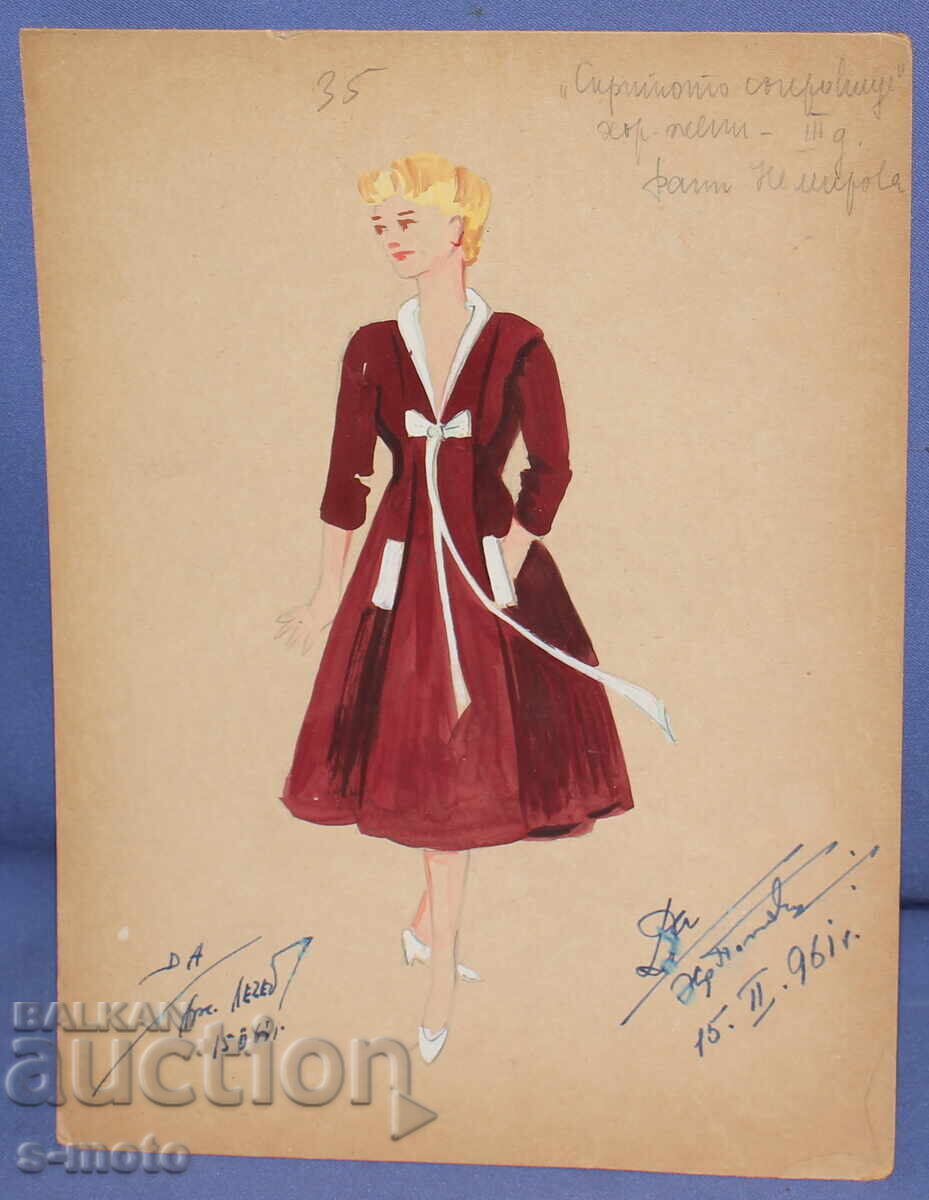 35
„Скритото съкровище"
хор-жени - III д.
Немирова
ДА
Да
15. II. 961 г.
BALKAN
auction
s-moto